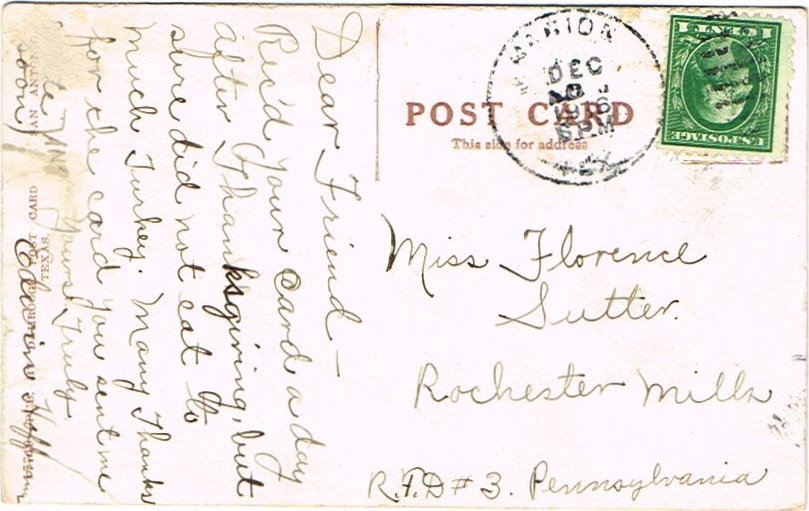 POST CARD
This side for address
MARION
DEC
6 PM
TEX
1 CENT 1
U.S. POSTAGE
Dear Friend –
Rec'd your card a day
after Thanksgiving, but
sure did not eat to
much Turkey. Many Thanks
for the card you sent me
Yours Truly
Edwin
soon)
Miss Florence
Sutter.
Rochester Mills
R.F.D # 3. Pennsylvania
POST CARD
SAN ANTONIO
TEXAS.